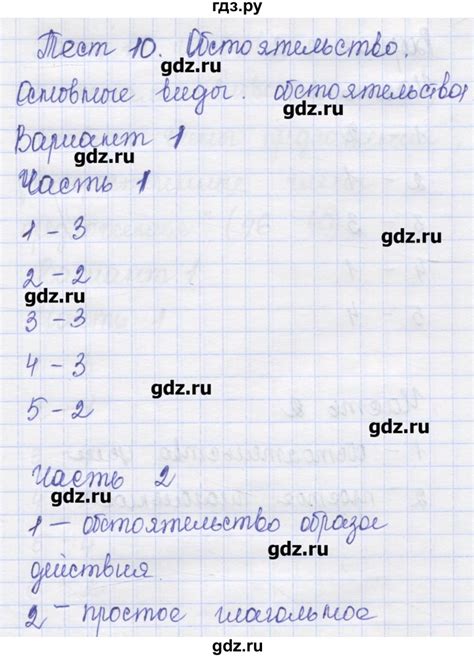 гдз.ру
Тест 10. Обстоятельство.
Основные виды. обстоятельства
Вариант 1
gdz.ru
gdz.ru
Часть 1
1 - 3
gdz.ru
2 - 2
gdz.ru
3 - 3
4 - 3
gdz.ru
5 - 2
gdz.ru
Часть 2
gdz.ru
1 - обстоятельство образое
gdz.ru
действия.
gdz.ru
2 - простое глагольное
gdz.ru